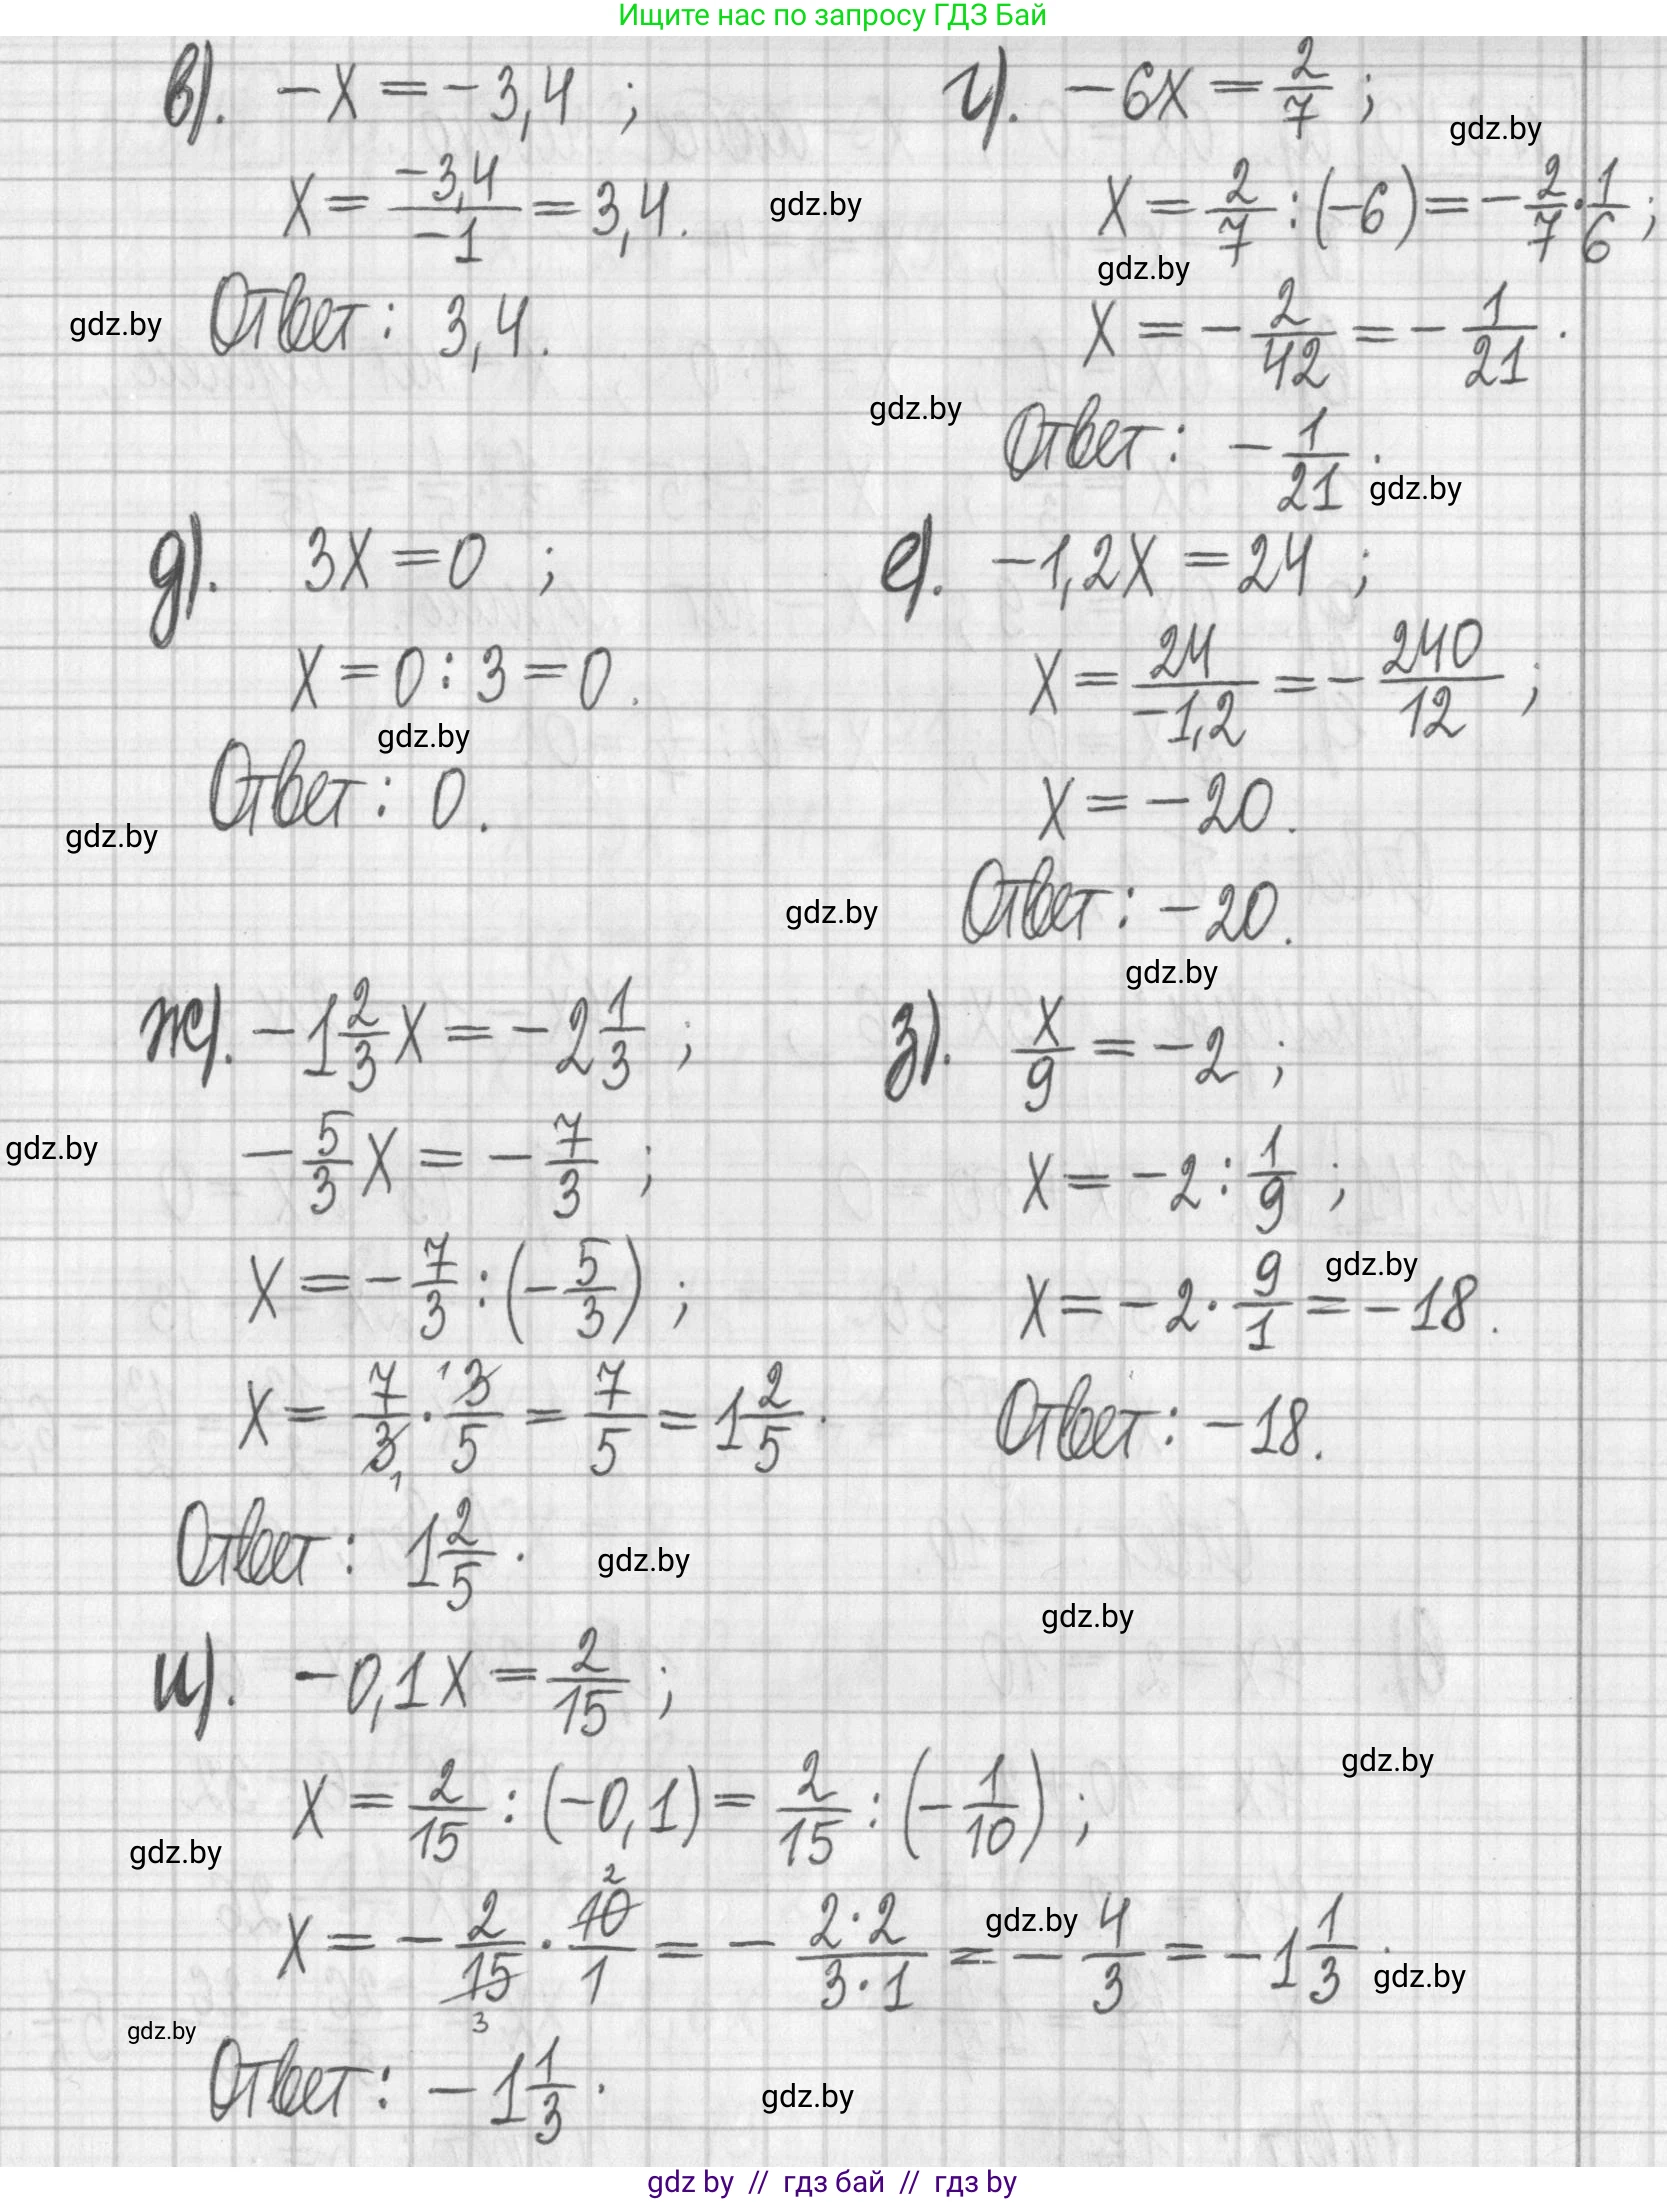 Ищите нас по запросу ГДЗ Бай
в). -x = -3,4 ;
x = -3,4/-1 = 3,4.
gdz.by
Ответ: 3,4.
gdz.by
г). -6x = 2/7 ;
gdz.by
x = 2/7 : (-6) = -2/7 · 1/6 ;
gdz.by
x = -2/42 = -1/21 .
gdz.by
Ответ: -1/21 .
gdz.by
д). 3x = 0 ;
x = 0 : 3 = 0 .
gdz.by
Ответ: 0.
gdz.by
е). -1,2x = 24 ;
x = 24/-1,2 = -240/12 ;
x = -20.
gdz.by
Ответ: -20.
gdz.by
ж). -1 2/3 x = -2 1/3 ;
-5/3 x = -7/3 ;
gdz.by
x = -7/3 : (-5/3) ;
x = 7/3 1 · 1 3/5 = 7/5 = 1 2/5 .
Ответ: 1 2/5 .
gdz.by
з). x/9 = -2 ;
x = -2 : 1/9 ;
gdz.by
x = -2 · 9/1 = -18 .
Ответ: -18.
gdz.by
и). -0,1x = 2/15 ;
gdz.by
x = 2/15 : (-0,1) = 2/15 : (-1/10) ;
gdz.by
x = -2/15 3 · 2 10/1 = -2·2/3·1 = -4/3 = -1 1/3 .
gdz.by
gdz.by
gdz.by
Ответ: -1 1/3 .
gdz.by
gdz by // гдз бай // гдз by